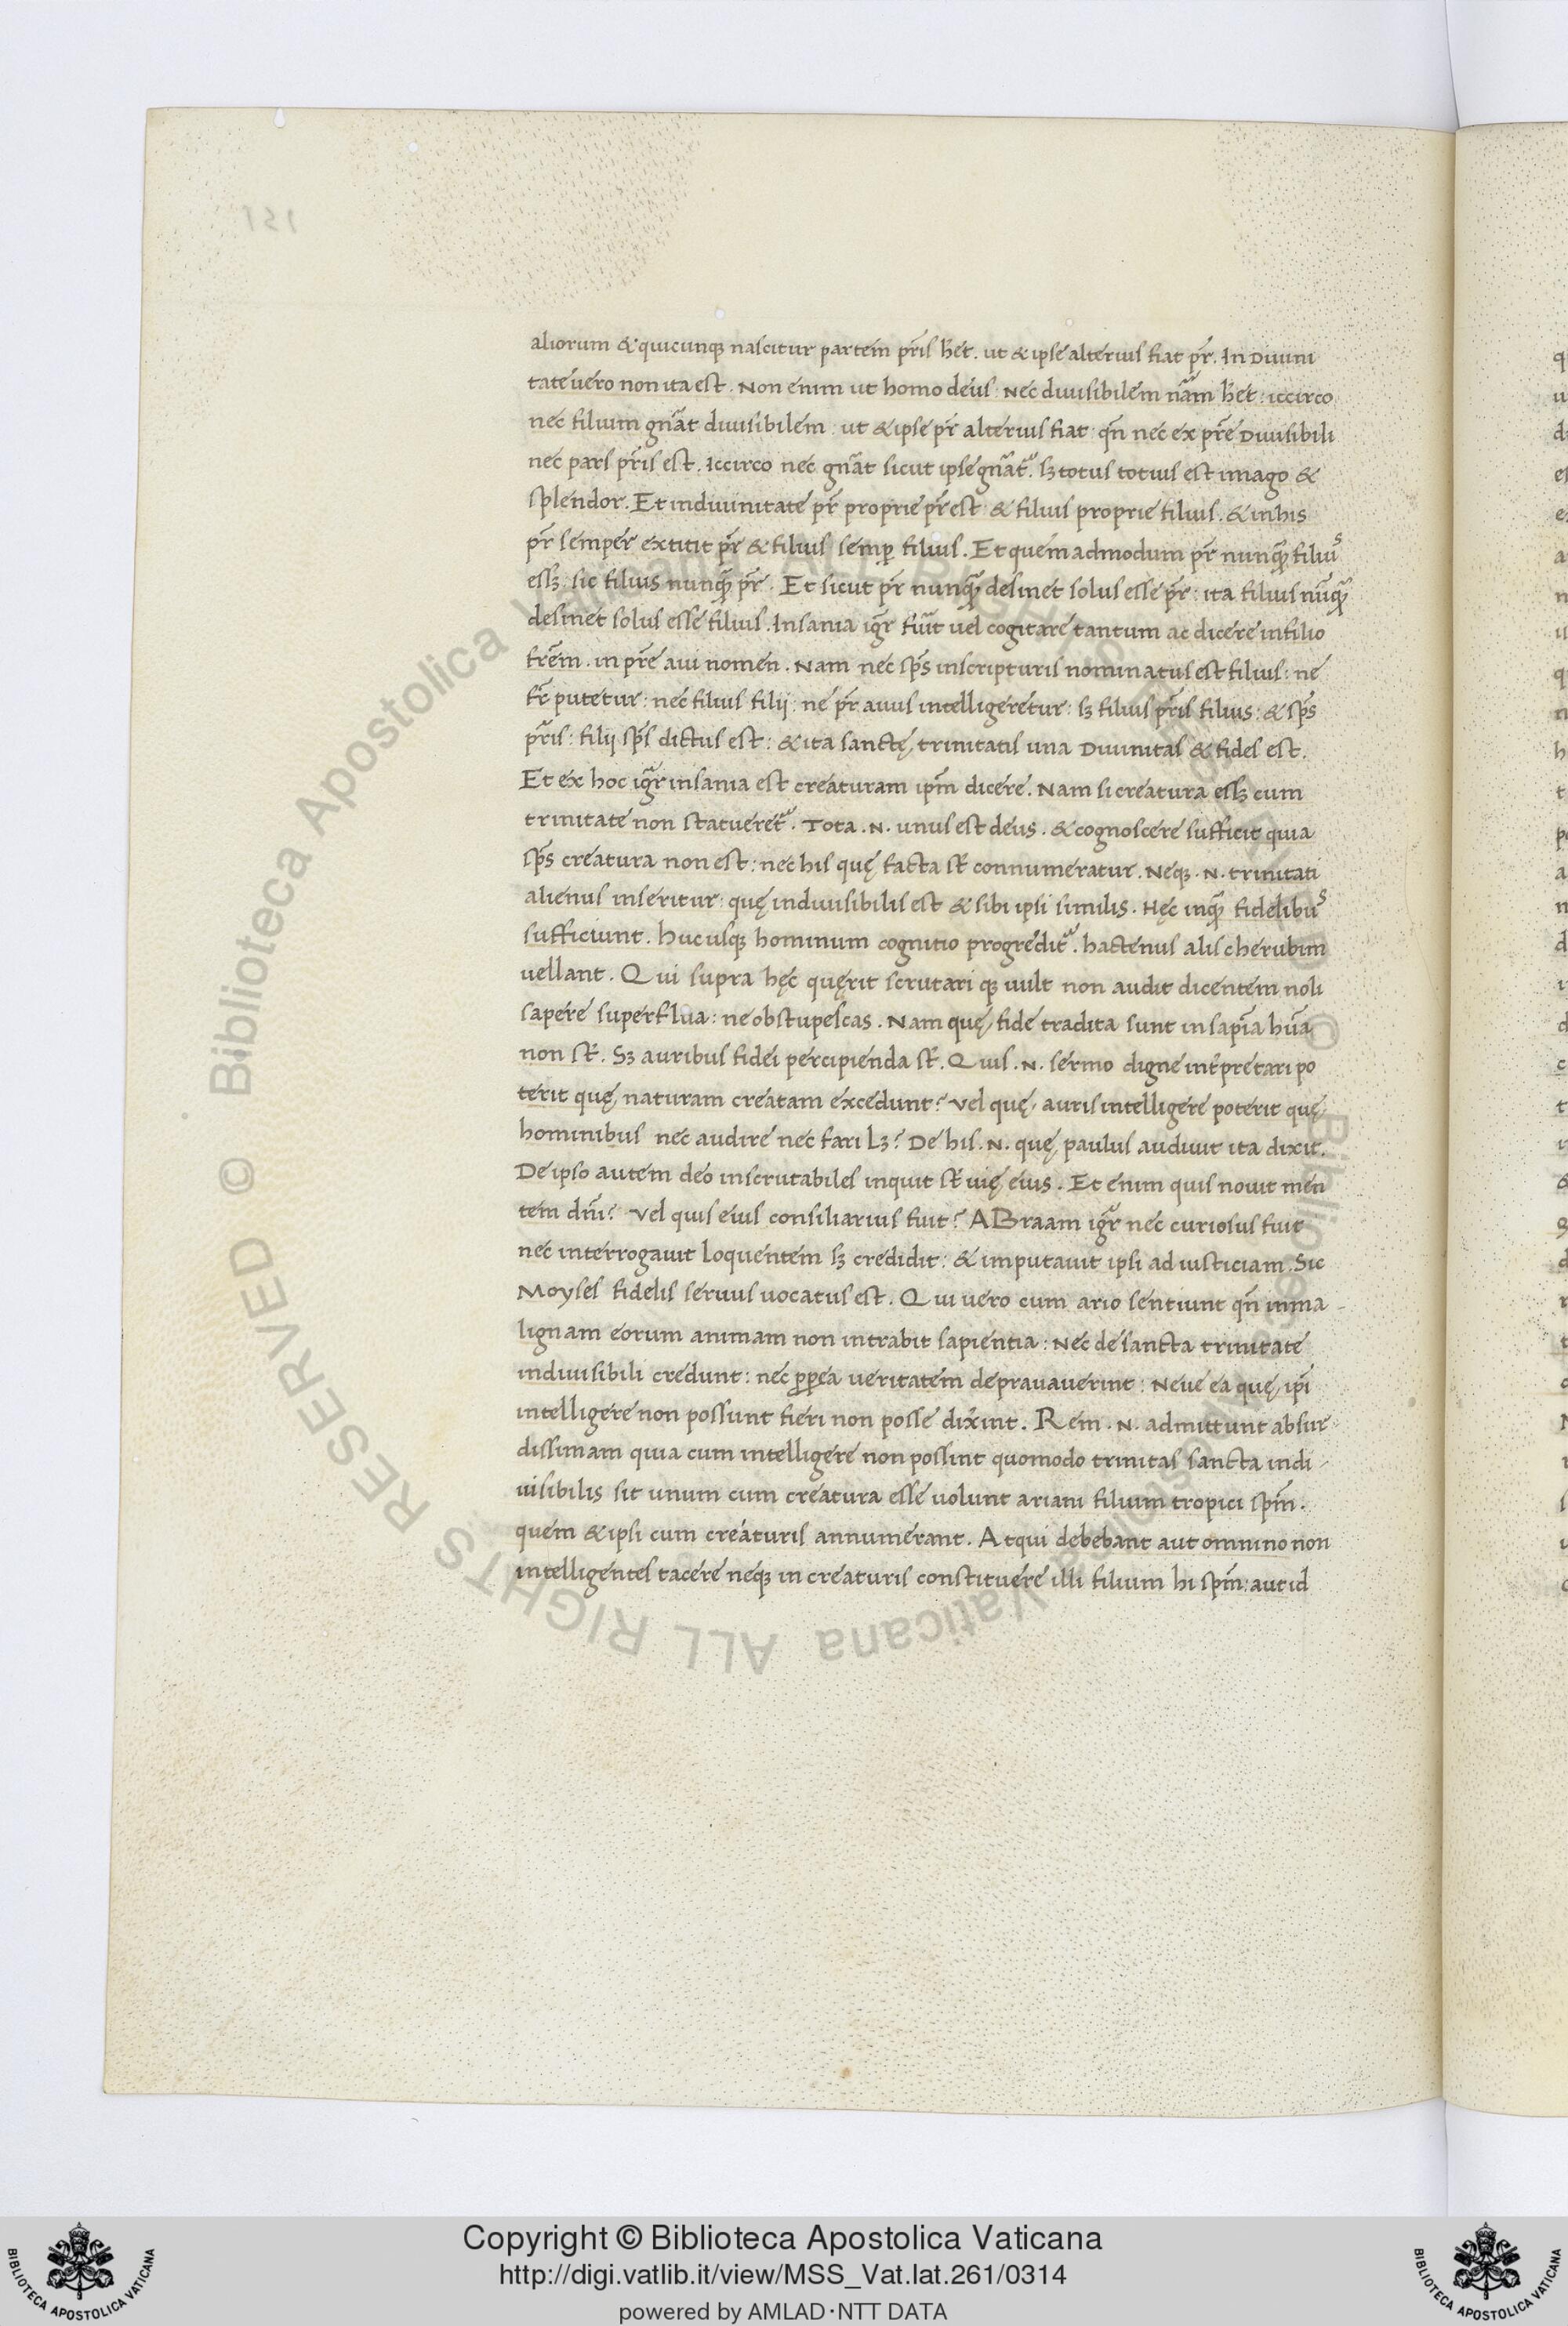 aliorum & quicunq; nascitur partem p̄ris h̄et. ut & ipse alterius fiat pr̄. In Diuini
tate uero non ita est. Non enim ut homo deus: Nec diuisibilem nãm h̄et: iccirco
nec filium gnãt diuisibilem: ut & ipse pr̄ alterius fiat: qn̄ nec ex pr̄e Diuisibili
nec pars pr̄is est. Iccirco nec gnãt sicut ipse gnãt᷑. sȝ totus totius est imago &
splendor. Et in diuinitate pr̄ proprie pr̄ est: & filius proprie filius. & in his
pr̄ semper extitit pr̄ & filius semꝑ filius. Et quemadmodum pr̄ nunq̃ filiuˢ
essȝ: sic filius nunq̃ pr̄. Et sicut pr̄ nunq̃ desinet solus esse pr̄: ita filius nūq̃
desinet solus esse filius. Insania igr̃ fūit uel cogitare tantum ac dicere in filio
fr̄em. in pr̄e aui nomen. Nam nec sp̄s in scripturis nominatus est filius: ne
fr̄ putetur: nec filius filij: ne pr̄ auus intelligeretur: sȝ filius pr̄is filius: & sp̄s
pr̃is: filij sp̄s dictus est: & ita sanctę trinitatis una Diuinitas & fides est.
Et ex hoc igr̃ insania est creaturam ip̄m dicere. Nam si creatura essȝ cum
trinitate non statueret᷑. Tota .N. unus est deus. & cognoscere sufficit quia
sp̄s creatura non est: nec his quę facta st̄ connumeratur. Neq; .N. trinitati
alienus inseritur: quę indiuisibilis est & sibi ipsi similis. Hęc inq̃ fidelibuˢ
sufficiunt. Huc usq; hominum cognitio progredit᷑. hactenus alis cherubim
uellant. Qui supra hęc quęrit scrutari q; uult non audit dicentem noli
sapere superflua: ne obstupescas. Nam quę fide tradita sunt in sapīa hūa
non st̄. Sȝ auribus fidei percipienda st̄. Quis .N. sermo digne inťpretari po
terit quę naturam creatam excedunt? Vel quę auris intelligere poterit quę
hominibus nec audire nec fari Lȝ? De his .N. quę paulus audiuit ita dixit.
De ipso autem deo inscrutabiles inquit st̄ uię eius. Et enim quis nouit men
tem dn̄i? Vel quis eius consiliarius fuit? ABraam igr̃ nec curiosus fuit
nec interrogauit loquentem sȝ credidit: & imputauit ipsi ad iusticiam. Sic
Moyses fidelis seruus uocatus est. Qui uero cum ario sentiunt qn̄ in ma-
lignam eorum animam non intrabit sapientia: Nec de sancta trinitate
indiuisibili credunt: nec ꝓpea ueritatem deprauauerint: Neue ea quę ip̄i
intelligere non possunt fieri non posse dix̄int. Rem .N. admittunt absur-
dissimam quia cum intelligere non possint quomodo trinitas sancta indi-
uisibilis sit unum cum creatura esse uolunt ariani filium tropici sp̄m.
quem & ipsi cum creaturis annumerant. Atqui debebant aut omnino non
intelligentes tacere neq; in creaturis constituere illi filium hi sp̄m: aut id
Copyright © Biblioteca Apostolica Vaticana
http://digi.vatlib.it/view/MSS_Vat.lat.261/0314
powered by AMLAD·NTT DATA
BIBLIOTECA APOSTOLICA VATICANA
BIBLIOTECA APOSTOLICA VATICANA
© Biblioteca Apostolica Vaticana ALL RIGHTS RESERVED
© Biblioteca Apostolica Vaticana ALL RIGHTS RESERVED